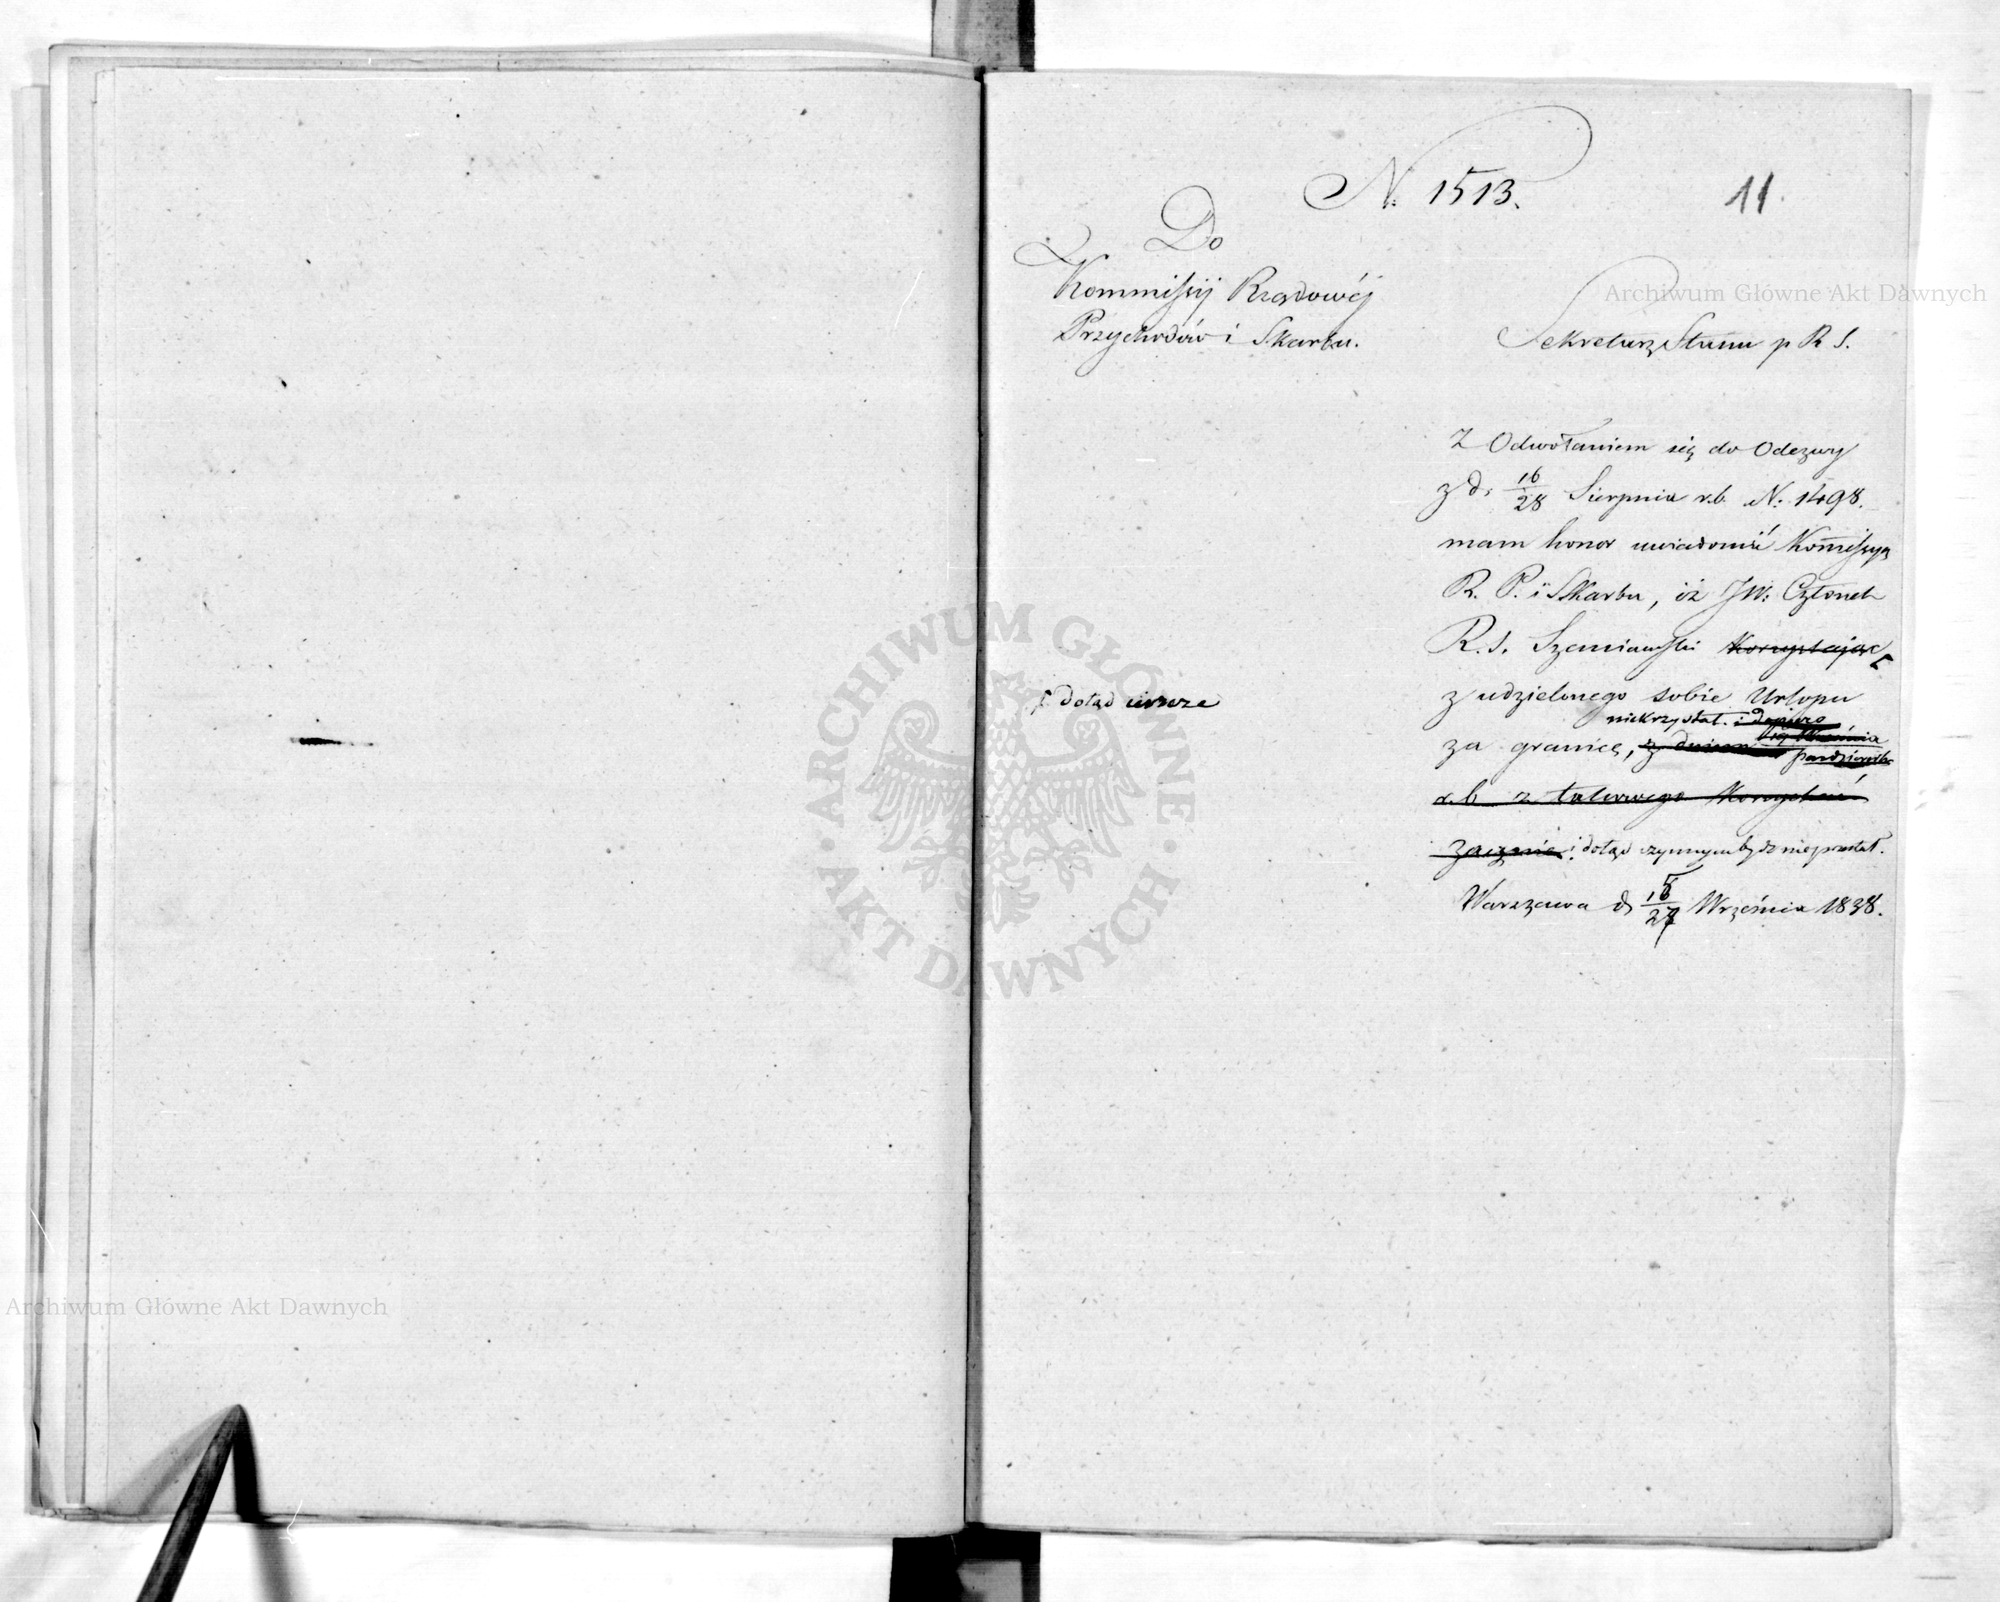 N. 1513.
11.
Do
Kommissyi Rządowéj
Przychodów i Skarbu.
Sekretarz Stanu p R S.
Z Odwołaniem się do Odezwy
z d. 16/28 Sierpnia r.b. N: 1498.
mam honor uwiadomić Kommissyą
R. P. i Skarbu, iż JW: Członek
R. S. Szaniawski Korzystając
ſ dotąd ieszcze
z udzielonego sobie Urlopu
niekrzystał. i dopiero
za granicę, z dniem Września
października
r.b z takowego Korzystać
zacznie i dotąd czynnym bydź nie przestał.
Warszawa d 15/27 Września 1838.
Archiwum Główne Akt Dawnych
ARCHIWUM GŁÓWNE AKT DAWNYCH
Archiwum Główne Akt Dawnych